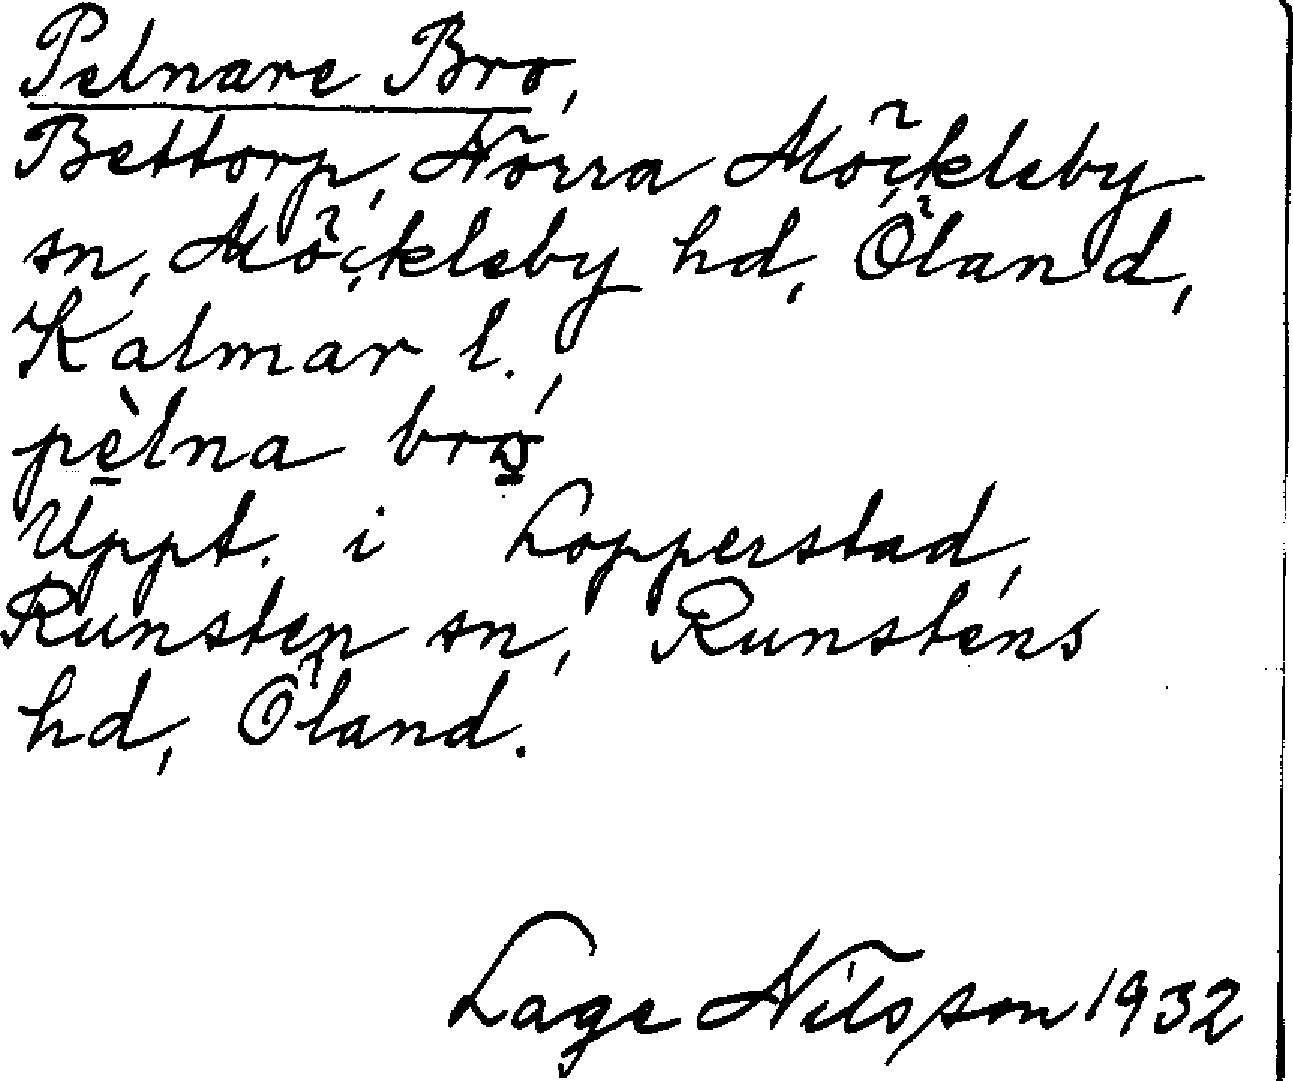 Pelnare Bro,
Bettorp, Norra Möckleby
sn, Möckleby hd, Öland,
Kalmar l.
pèlna bro
Uppt. i Lopperstad,
Runsten sn, Runstens
hd, Öland.
Lage Nilsson 1932